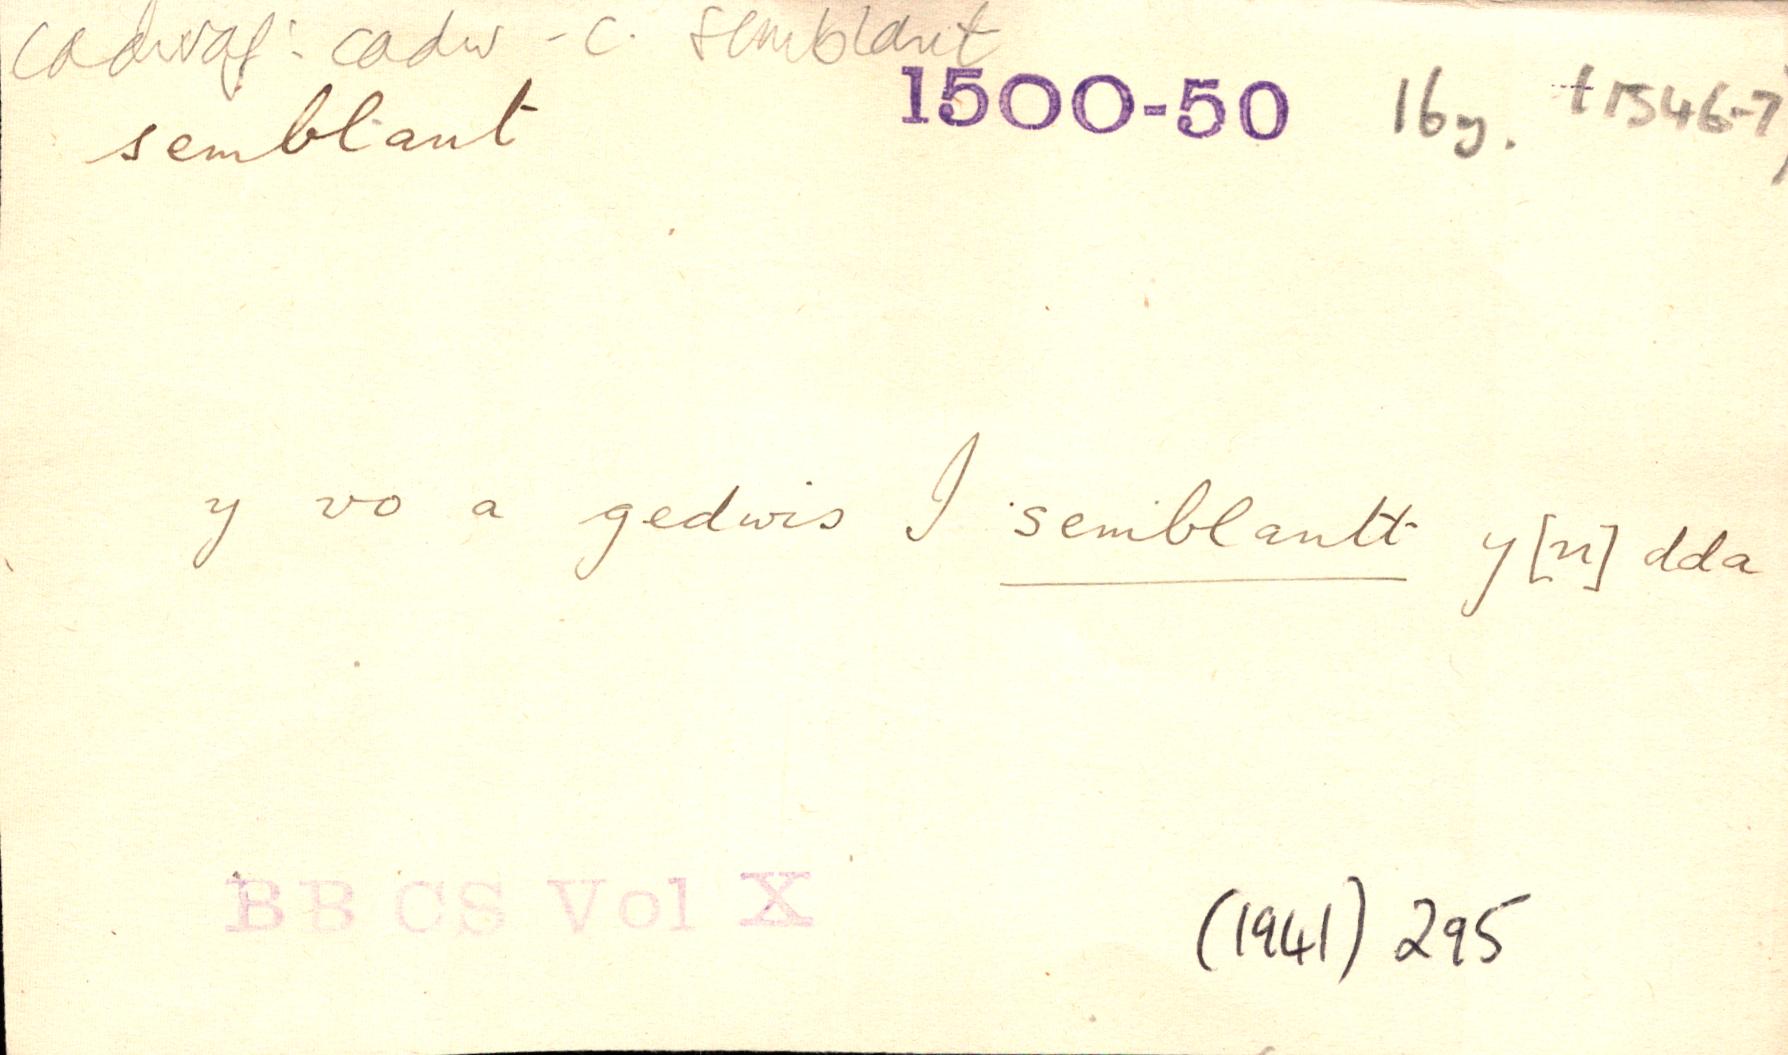 cadwaf: cadw - c. semblant
semblant 1500-50 16g. (1546-7)
y vo a gedwis I semblantt y[n] dda
BBCS Vol X (1941) 295